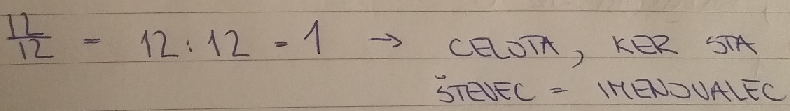 12/12 = 12 : 12 = 1 → CELOTA, KER STA
ŠTEVEC = IMENOVALEC